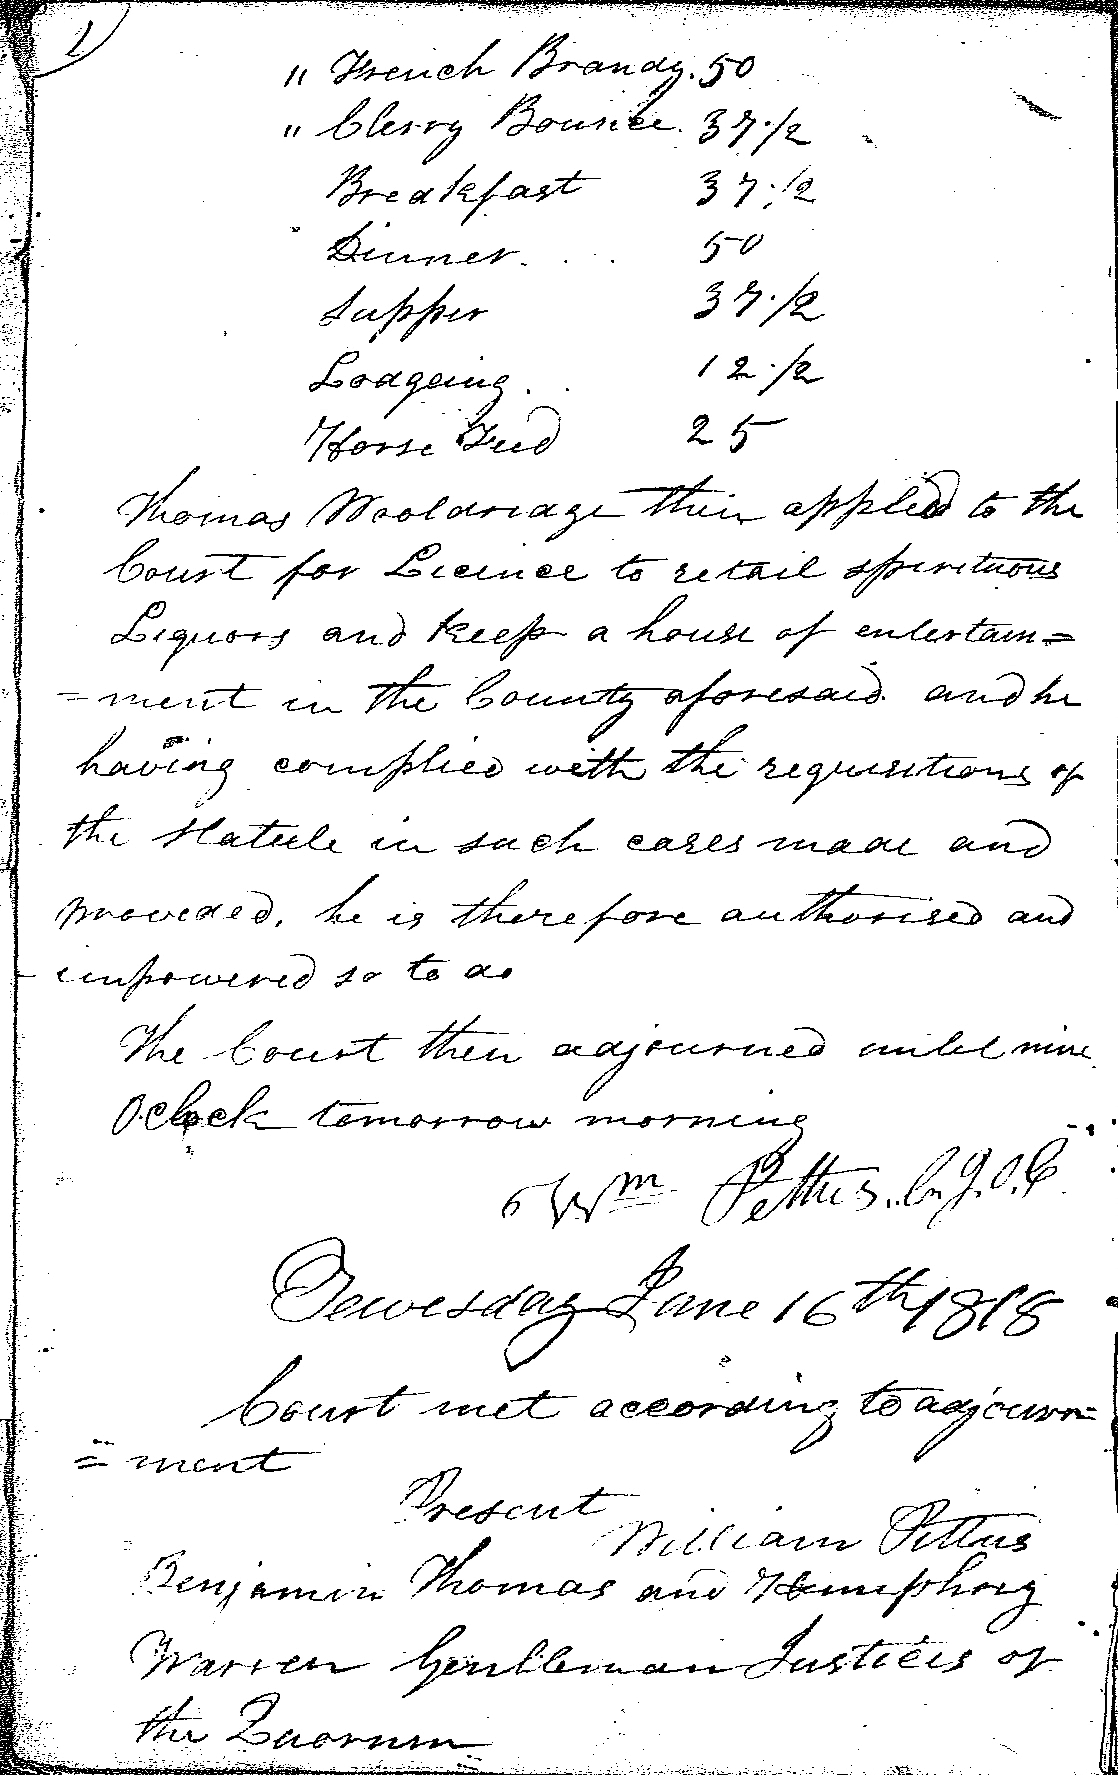 1
" French Brandy. 50
" Cherry Bounce. 37.1/2
Breakfast 37.1/2
Dinner. . . . 50
Supper 37.1/2
Lodgeing . . 12.1/2
Horse Feed 25
Thomas Wooldridge then applied to the
Court for Licence to retail spirituous
Liquors and keep a house of entertain=
=ment in the County aforesaid and he
having complied with the requisitions of
the Statute in such cases made and
provided, he is therefore authorised and
impowered so to do
The Court then adjourned until nine
Oclock tomorrow morning
Wm Pettus. C. J. O. C
Tewesday June 16th 1818
Court met according to adjourn=
=ment
Present
William Pettus
Benjamin Thomas and Humphrey
Warren Gentleman Justices of
the Quorum